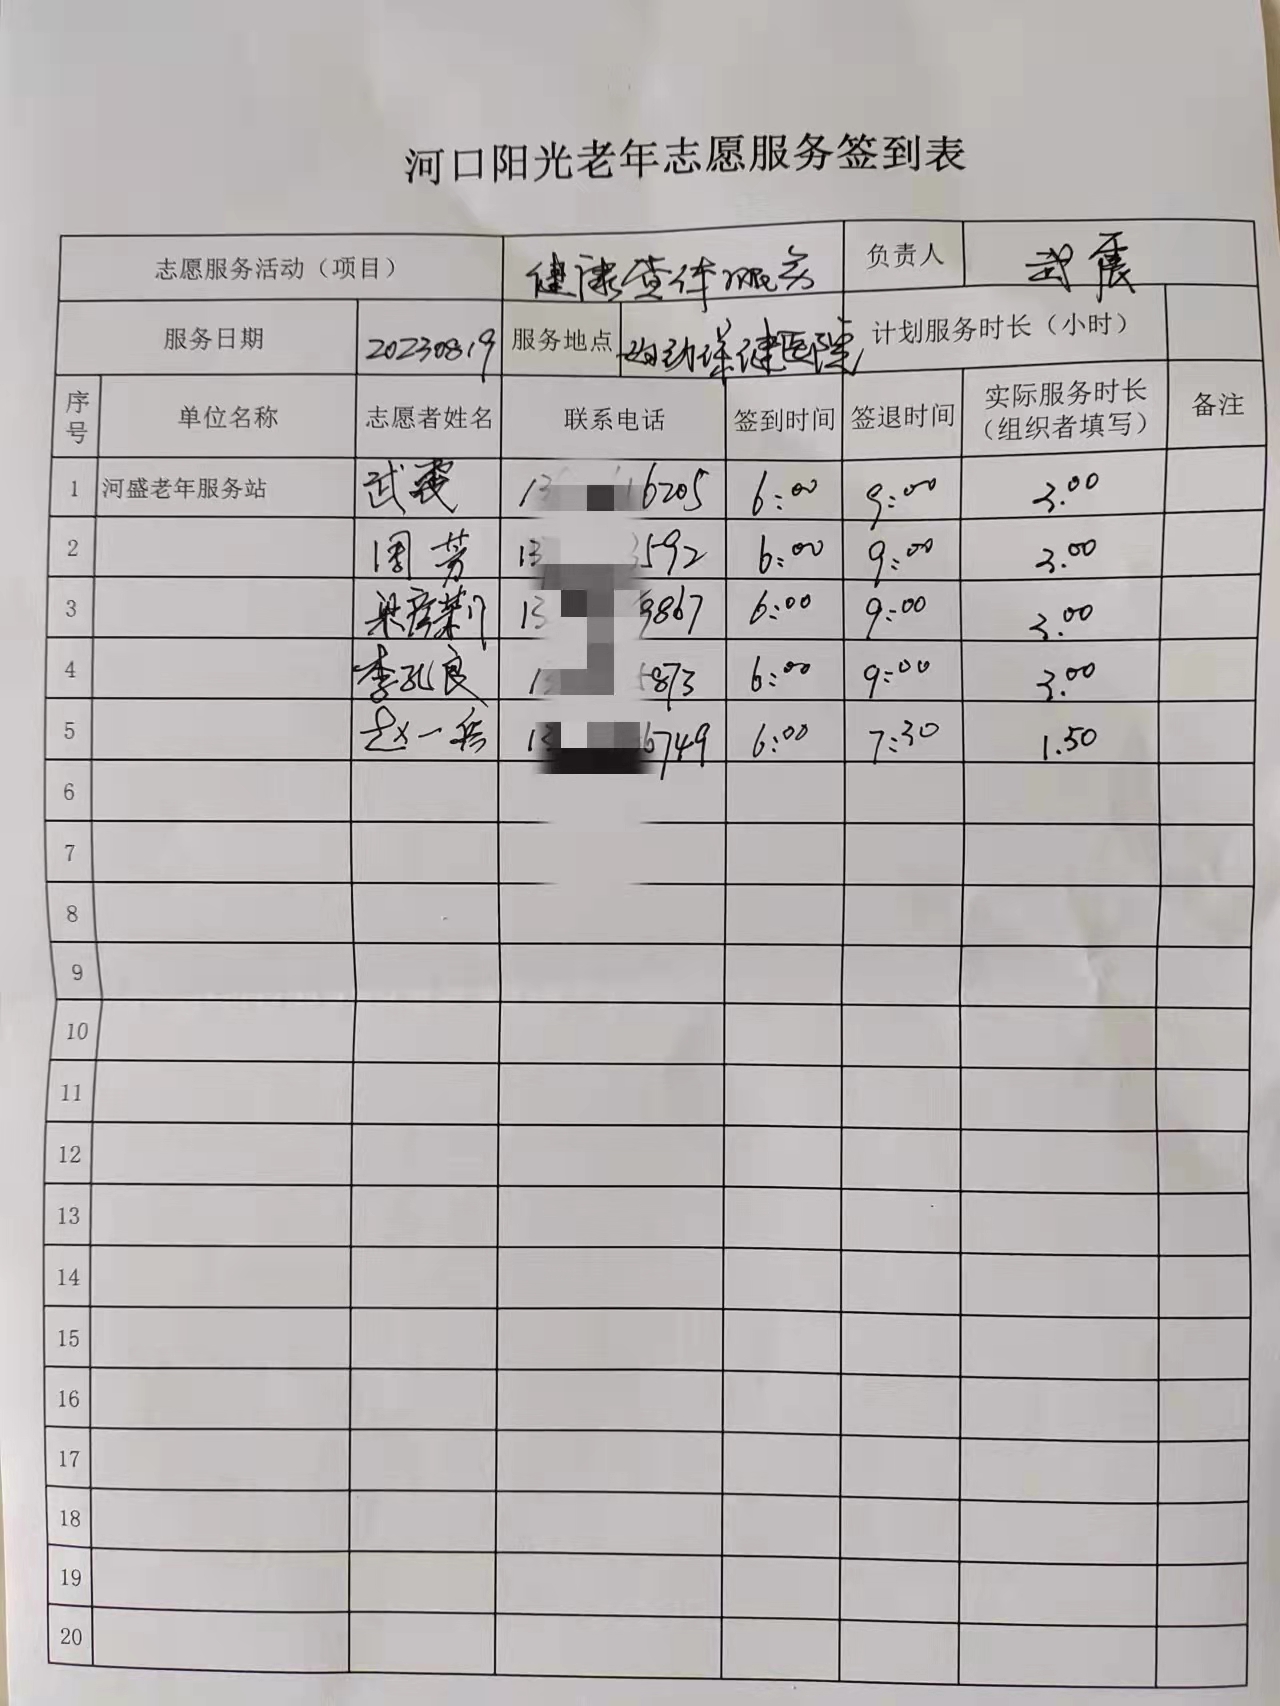 河口阳光老年志愿服务签到表
志愿服务活动（项目） 健康查体服务 负责人 武震
服务日期 20230819 服务地点 健医院 计划服务时长（小时）
序号 单位名称 志愿者姓名 联系电话 签到时间 签退时间 实际服务时长（组织者填写） 备注
1 河盛老年服务站 武震 13 16205 6:00 9:00 3.00
2 周芳 13 3592 6:00 9:00 3.00
3 梁 13 9867 6:00 9:00 3.00
4 李孔良 13 5873 6:00 9:00 3.00
5 赵一 13 6749 6:00 7:30 1.50
6
7
8
9
10
11
12
13
14
15
16
17
18
19
20